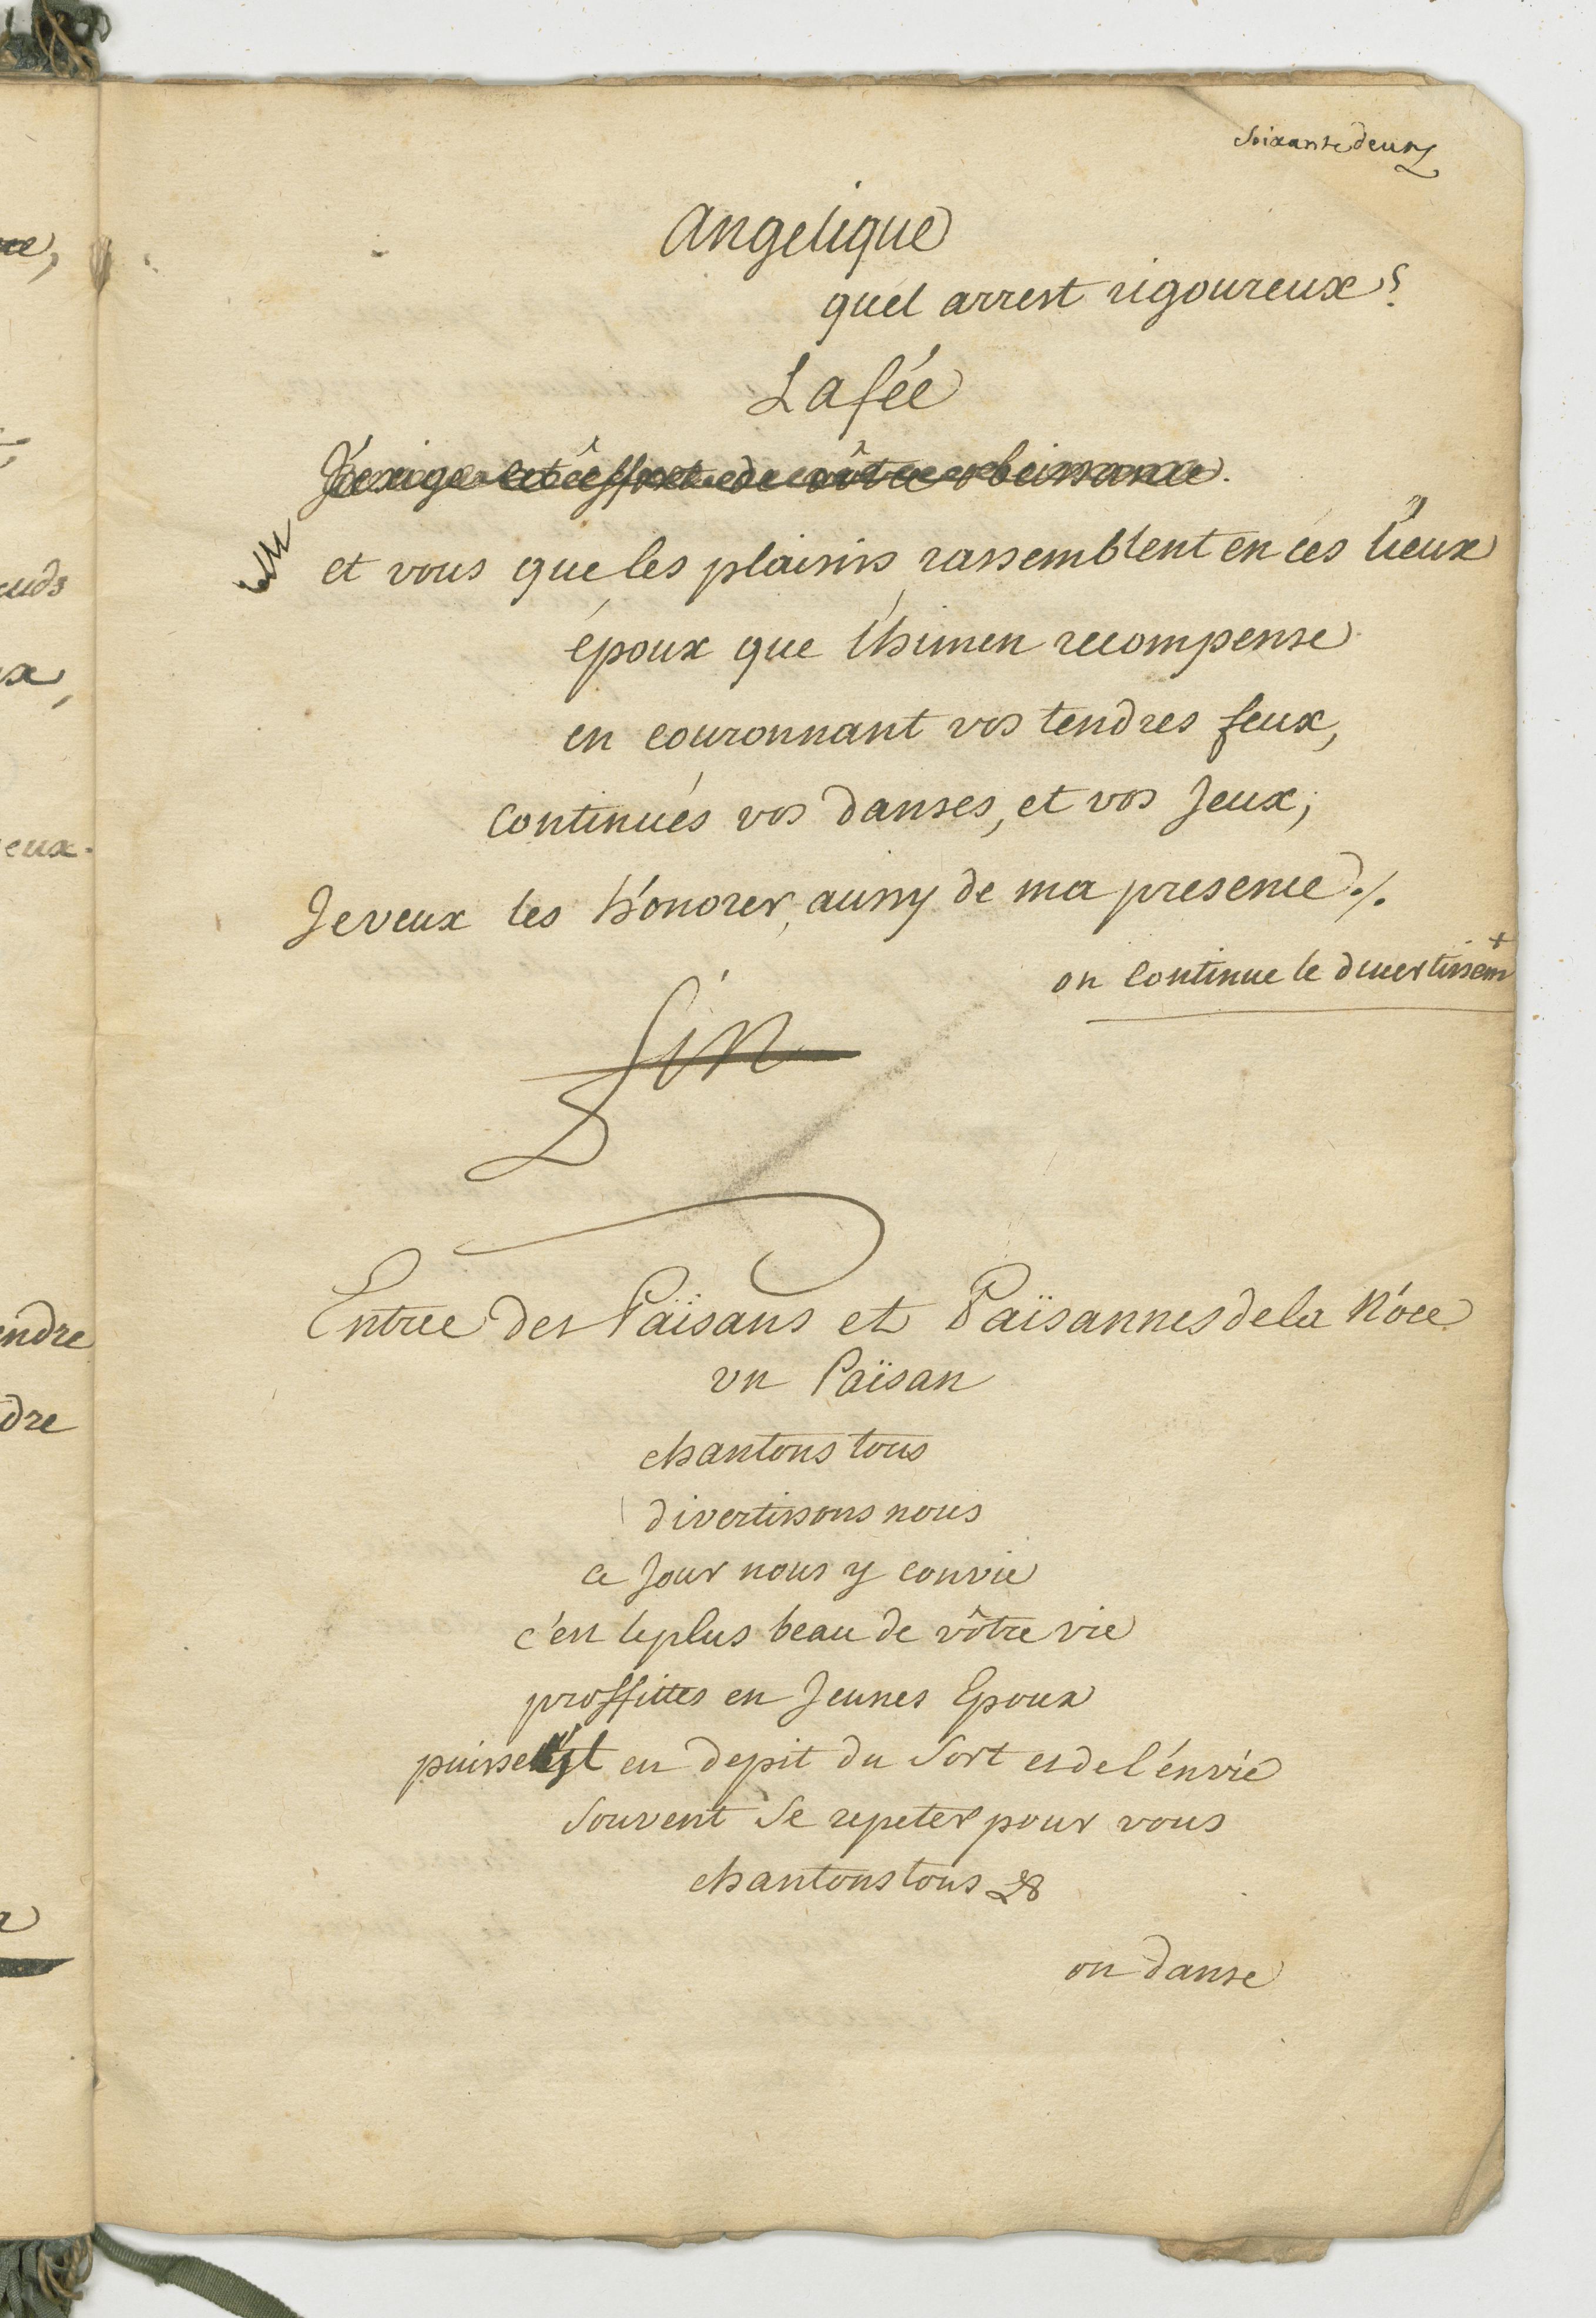 Soixante deux
Angelique
quel arrest rigoureux?
La fée
J'exige cet éffort de vôtre obeissance.
et vous que les plaisirs rassemblent en ces lieux
époux que l'himen recompense
en couronnant vos tendres feux,
continués vos danses, et vos Jeux;
Je veux les hónorer, aussy de ma presence ./.
on continue le divertissem+
fin
Entree des Païsans et Païsannes de la Nóce
un Païsan
chantons tous
divertissons nous
ce Jour nous y convie
c'est le plus beau de vôtre vie
proffittes en Jeunes Epoux
puisse t'il en depit du Sort et de l'énvie
Souvent Se repeter pour vous
chantons tous &
on danse
ce,
euds
ux,
eux.
endre
dre